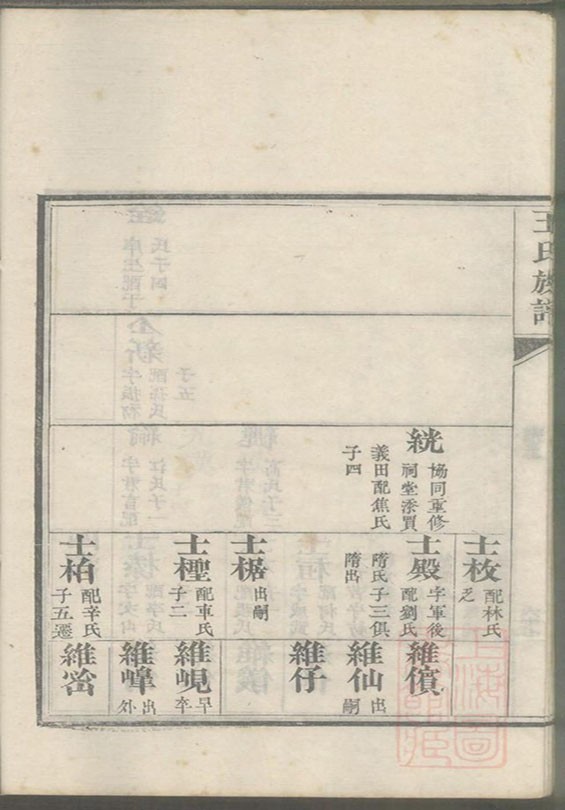 王氏族譜
絖
協同重修
祠堂添買
義田配焦氏
子四
士枚
配林氏
乏
士殿
字軍後
配劉氏
隋氏子三俱
隋出
士椐
出嗣
士檉
配車氏
子二
士柏
配辛氏
子五遷
維償
維仙
出
嗣
維仔
維峴
早
卒
維㠔
出
外